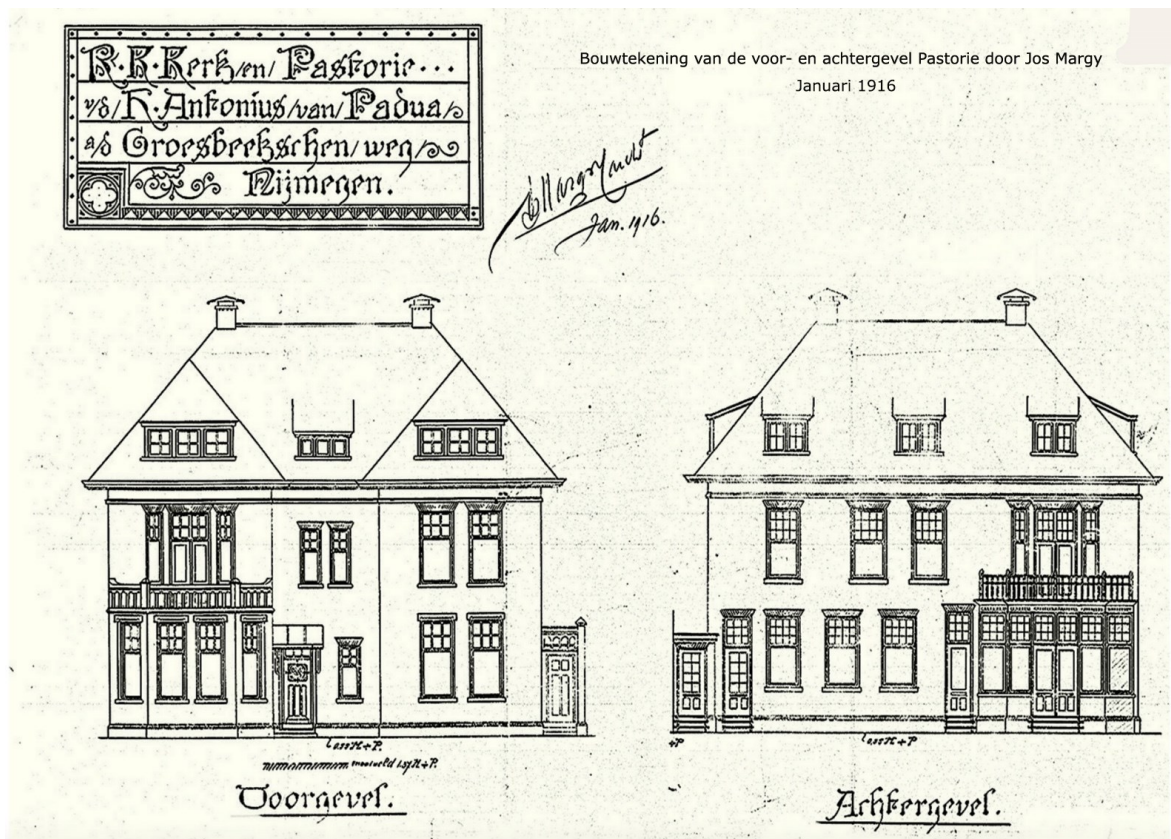 R.K. Kerk/en/Pastorie...
v/d/H.Antonius/van/Padua/
a/d Groesbeekschen/weg/
Nijmegen.
Bouwtekening van de voor- en achtergevel Pastorie door Jos Margy
Januari 1916
Jan. 1916.
+P.
+P
+P
maaiveld
+P.
Voorgevel.
Achtergevel.